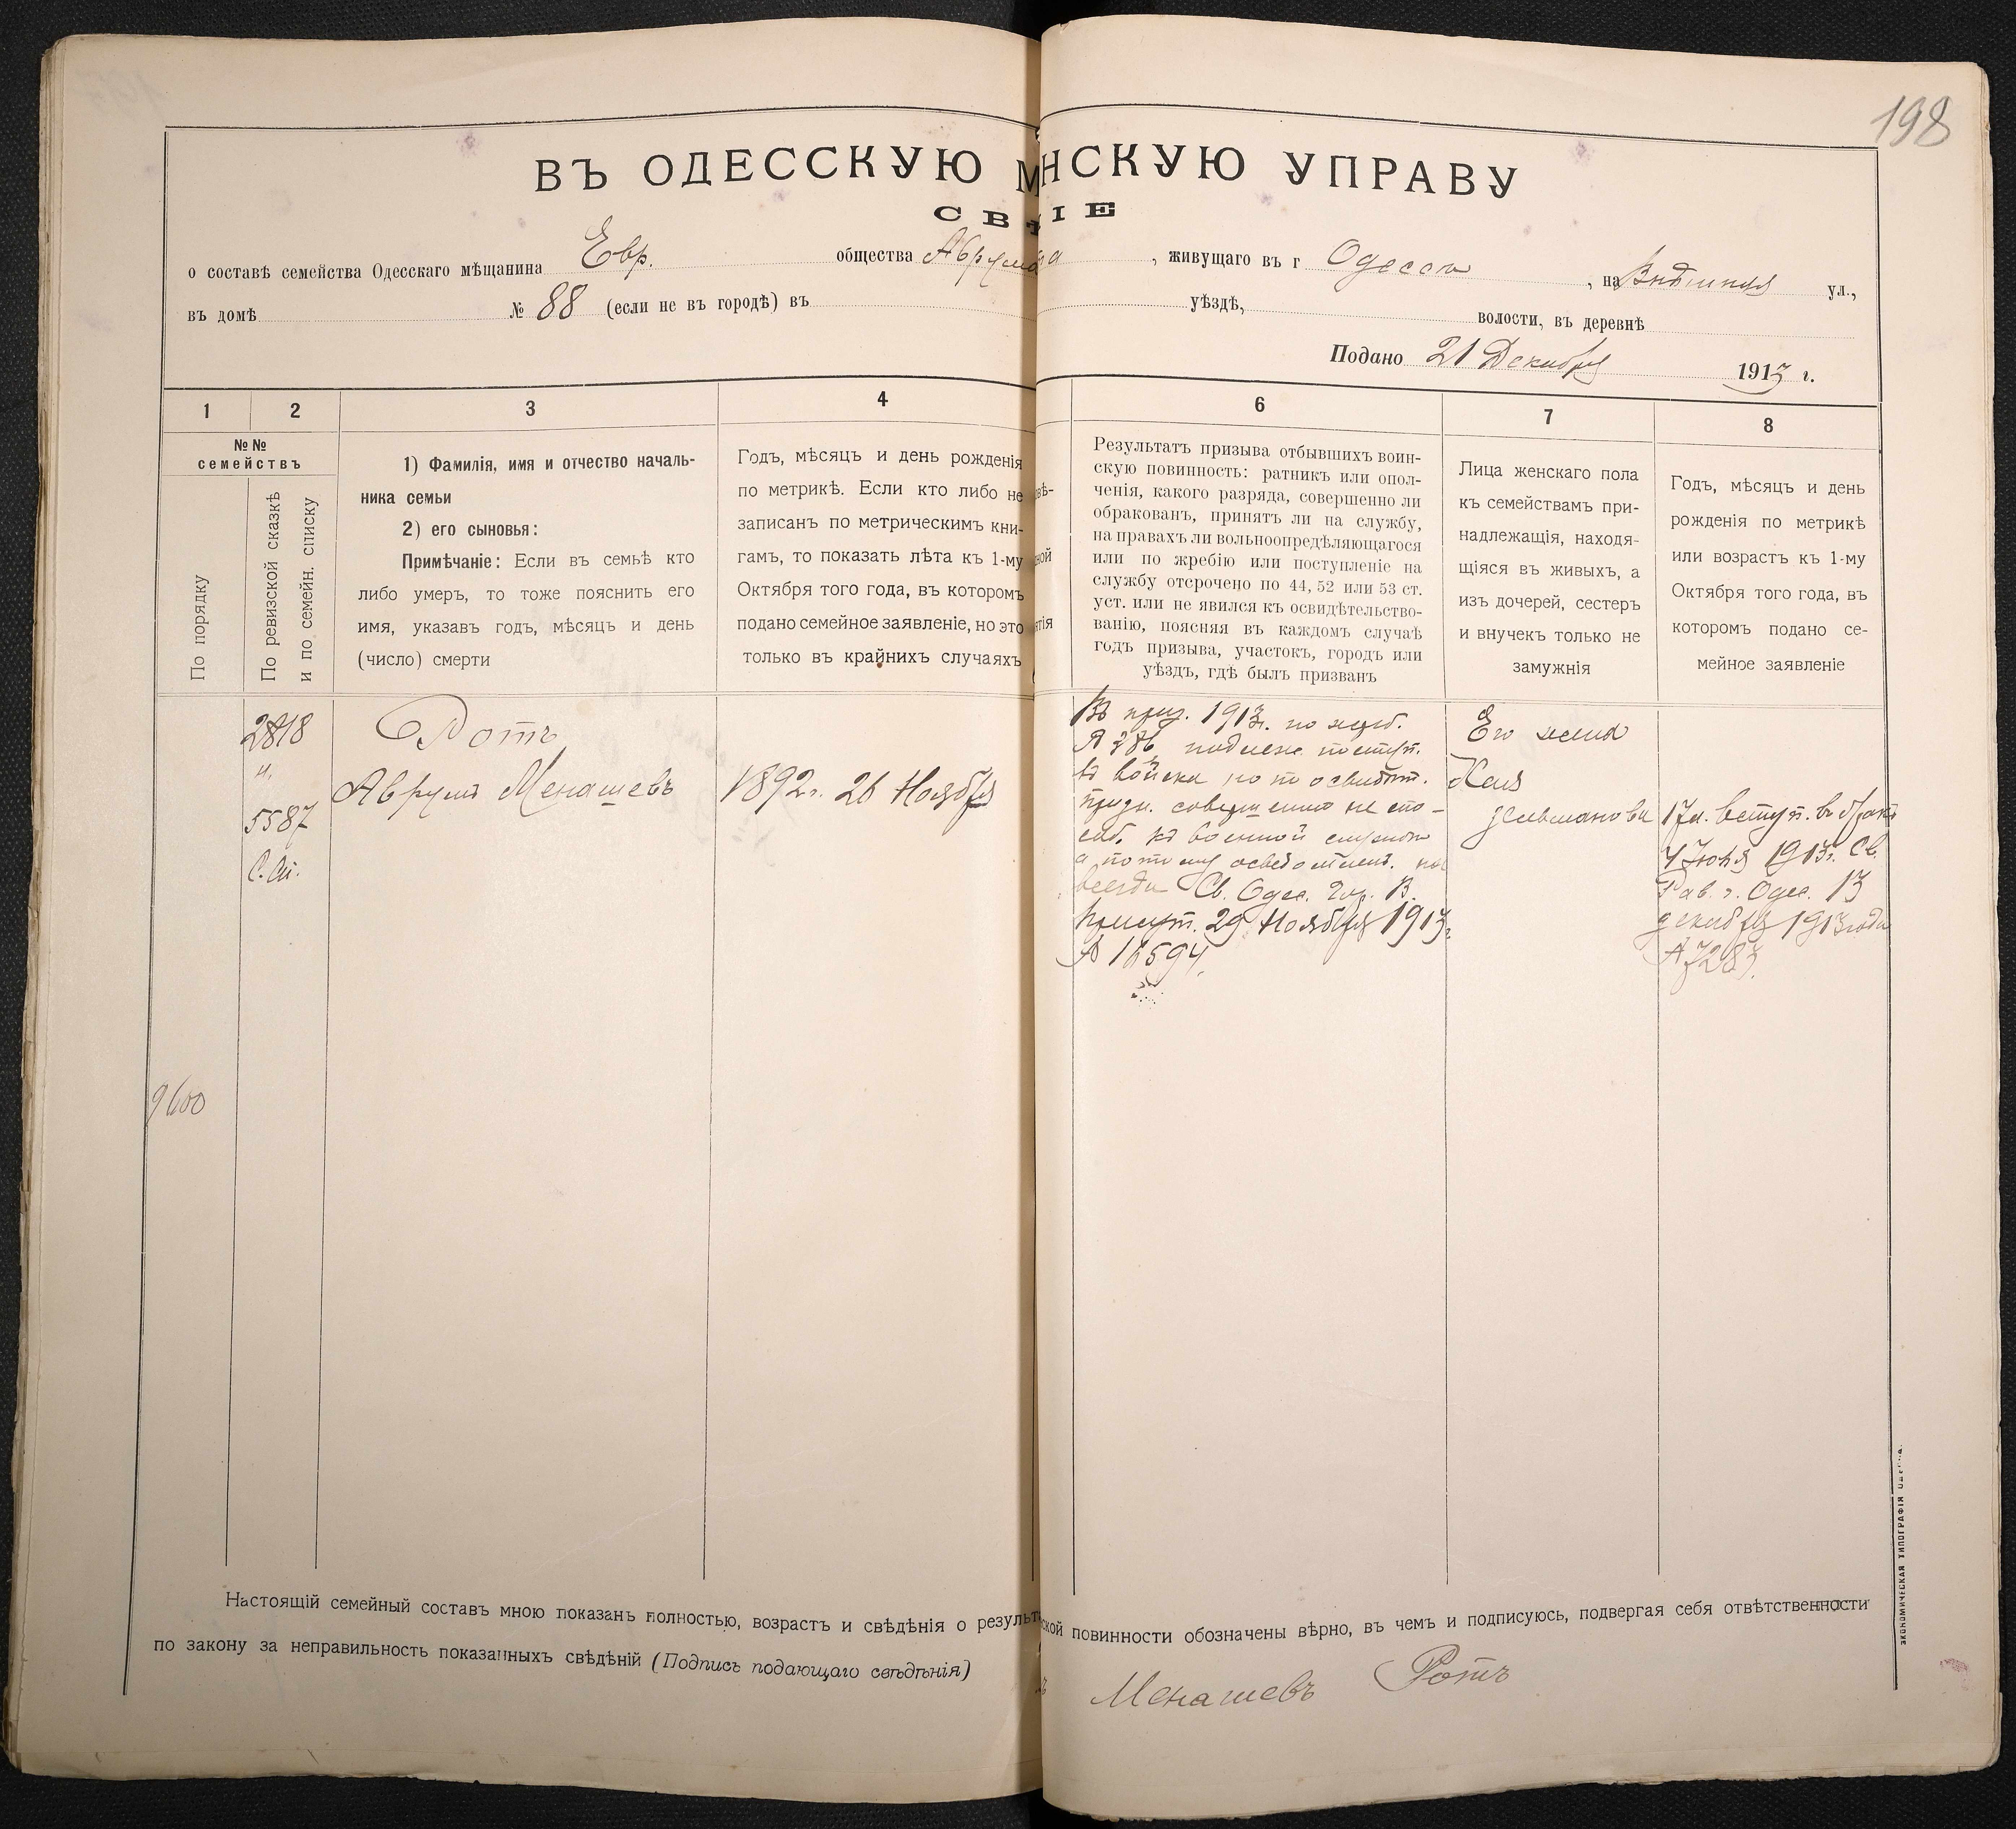 198
ВЪ ОДЕССКУЮ М НСКУЮ УПРАВУ
СВ ІЕ
о составѣ семейства Одесскаго мѣщанина Евр. общества Аврума , живущаго въ г Одессѣ , на Внѣшняя ул.,
въ домѣ № 88 (если не въ городѣ) въ уѣздѣ, волости, въ деревнѣ
Подано 21 Декабря 1913 г.
1 2 3 4 6 7 8
№№
семействъ
По порядку
По ревизской сказкѣ
и по семейн. списку
1) Фамилія, имя и отчество началь-
ника семьи
2) его сыновья:
Примѣчаніе: Если въ семьѣ кто
либо умеръ, то тоже пояснить его
имя, указавъ годъ, мѣсяцъ и день
(число) смерти
Годъ, мѣсяцъ и день рожденія
по метрикѣ. Если кто либо не
записанъ по метрическимъ кни-
гамъ, то показать лѣта къ 1-му
Октября того года, въ которомъ
подано семейное заявленіе, но это
только въ крайнихъ случаяхъ
вѣ-
ной
ятія
Результатъ призыва отбывшихъ воин-
скую повинность: ратникъ или опол-
ченія, какого разряда, совершенно ли
обракованъ, принятъ ли на службу,
на правахъ ли вольноопредѣляющагося
или по жребію или поступленіе на
службу отсрочено по 44, 52 или 53 ст.
уст. или не явился къ освидѣтельство-
ванію, поясняя въ каждомъ случаѣ
годъ призыва, участокъ, городъ или
уѣздъ, гдѣ былъ призванъ
Лица женскаго пола
къ семействамъ при-
надлежащія, находя-
щіяся въ живыхъ, а
изъ дочерей, сестеръ
и внучекъ только не
замужнія
Годъ, мѣсяцъ и день
рожденія по метрикѣ
или возрастъ къ 1-му
Октября того года, въ
которомъ подано се-
мейное заявленіе
2818
и
5587
С. сп.
9600
Ротъ
Аврумъ Менашевъ
1892 г. 26 Ноября
Въ приз. 1913 г. по жреб.
№ 286 подлеж. поступ.
въ войска но по освидѣт.
призн. совершенно не спо-
соб. къ военной службѣ
а потому освобожденъ на
всегда Св. Одес. Гор. В.
Присут. 29 Ноября 1913 г.
№ 16594.
Его жена
Хая
Зельманова
17 л. вступ. въ бракъ
7 Іюня 1913 г. Св.
Рав. г. Одес. 13
декабря 1913 года
№ 7283.
Настоящій семейный составъ мною показанъ полностью, возрастъ и свѣдѣнія о результ ской повинности обозначены вѣрно, въ чемъ и подписуюсь, подвергая себя отвѣтственности
по закону за неправильность показанныхъ свѣдѣній (Подпись подающаго свѣдѣнія)
Менашевъ Ротъ
ЭКОНОМИЧЕСКАЯ ТИПОГРАФІЯ ОДЕССА.